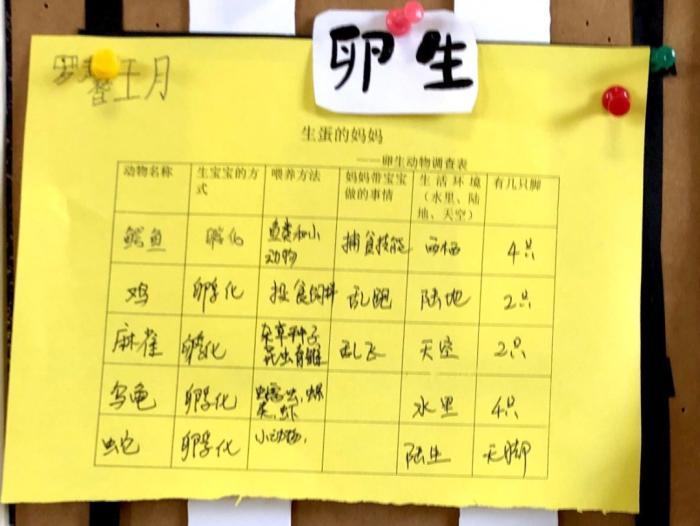 卵生
生蛋的妈妈
——卵生动物调查表
动物名称 生宝宝的方式 喂养方法 妈妈带宝宝做的事情 生活环境（水里、陆地、天空） 有几只脚
鳄鱼 孵化 鱼类和小动物 捕食技能 两栖 4只
鸡 孵化 投食饲料 乱跑 陆地 2只
麻雀 孵化 杂草种子 昆虫 乱飞 天空 2只
乌龟 孵化 虾 水里 4只
蛇 孵化 小动物, 陆生 无脚